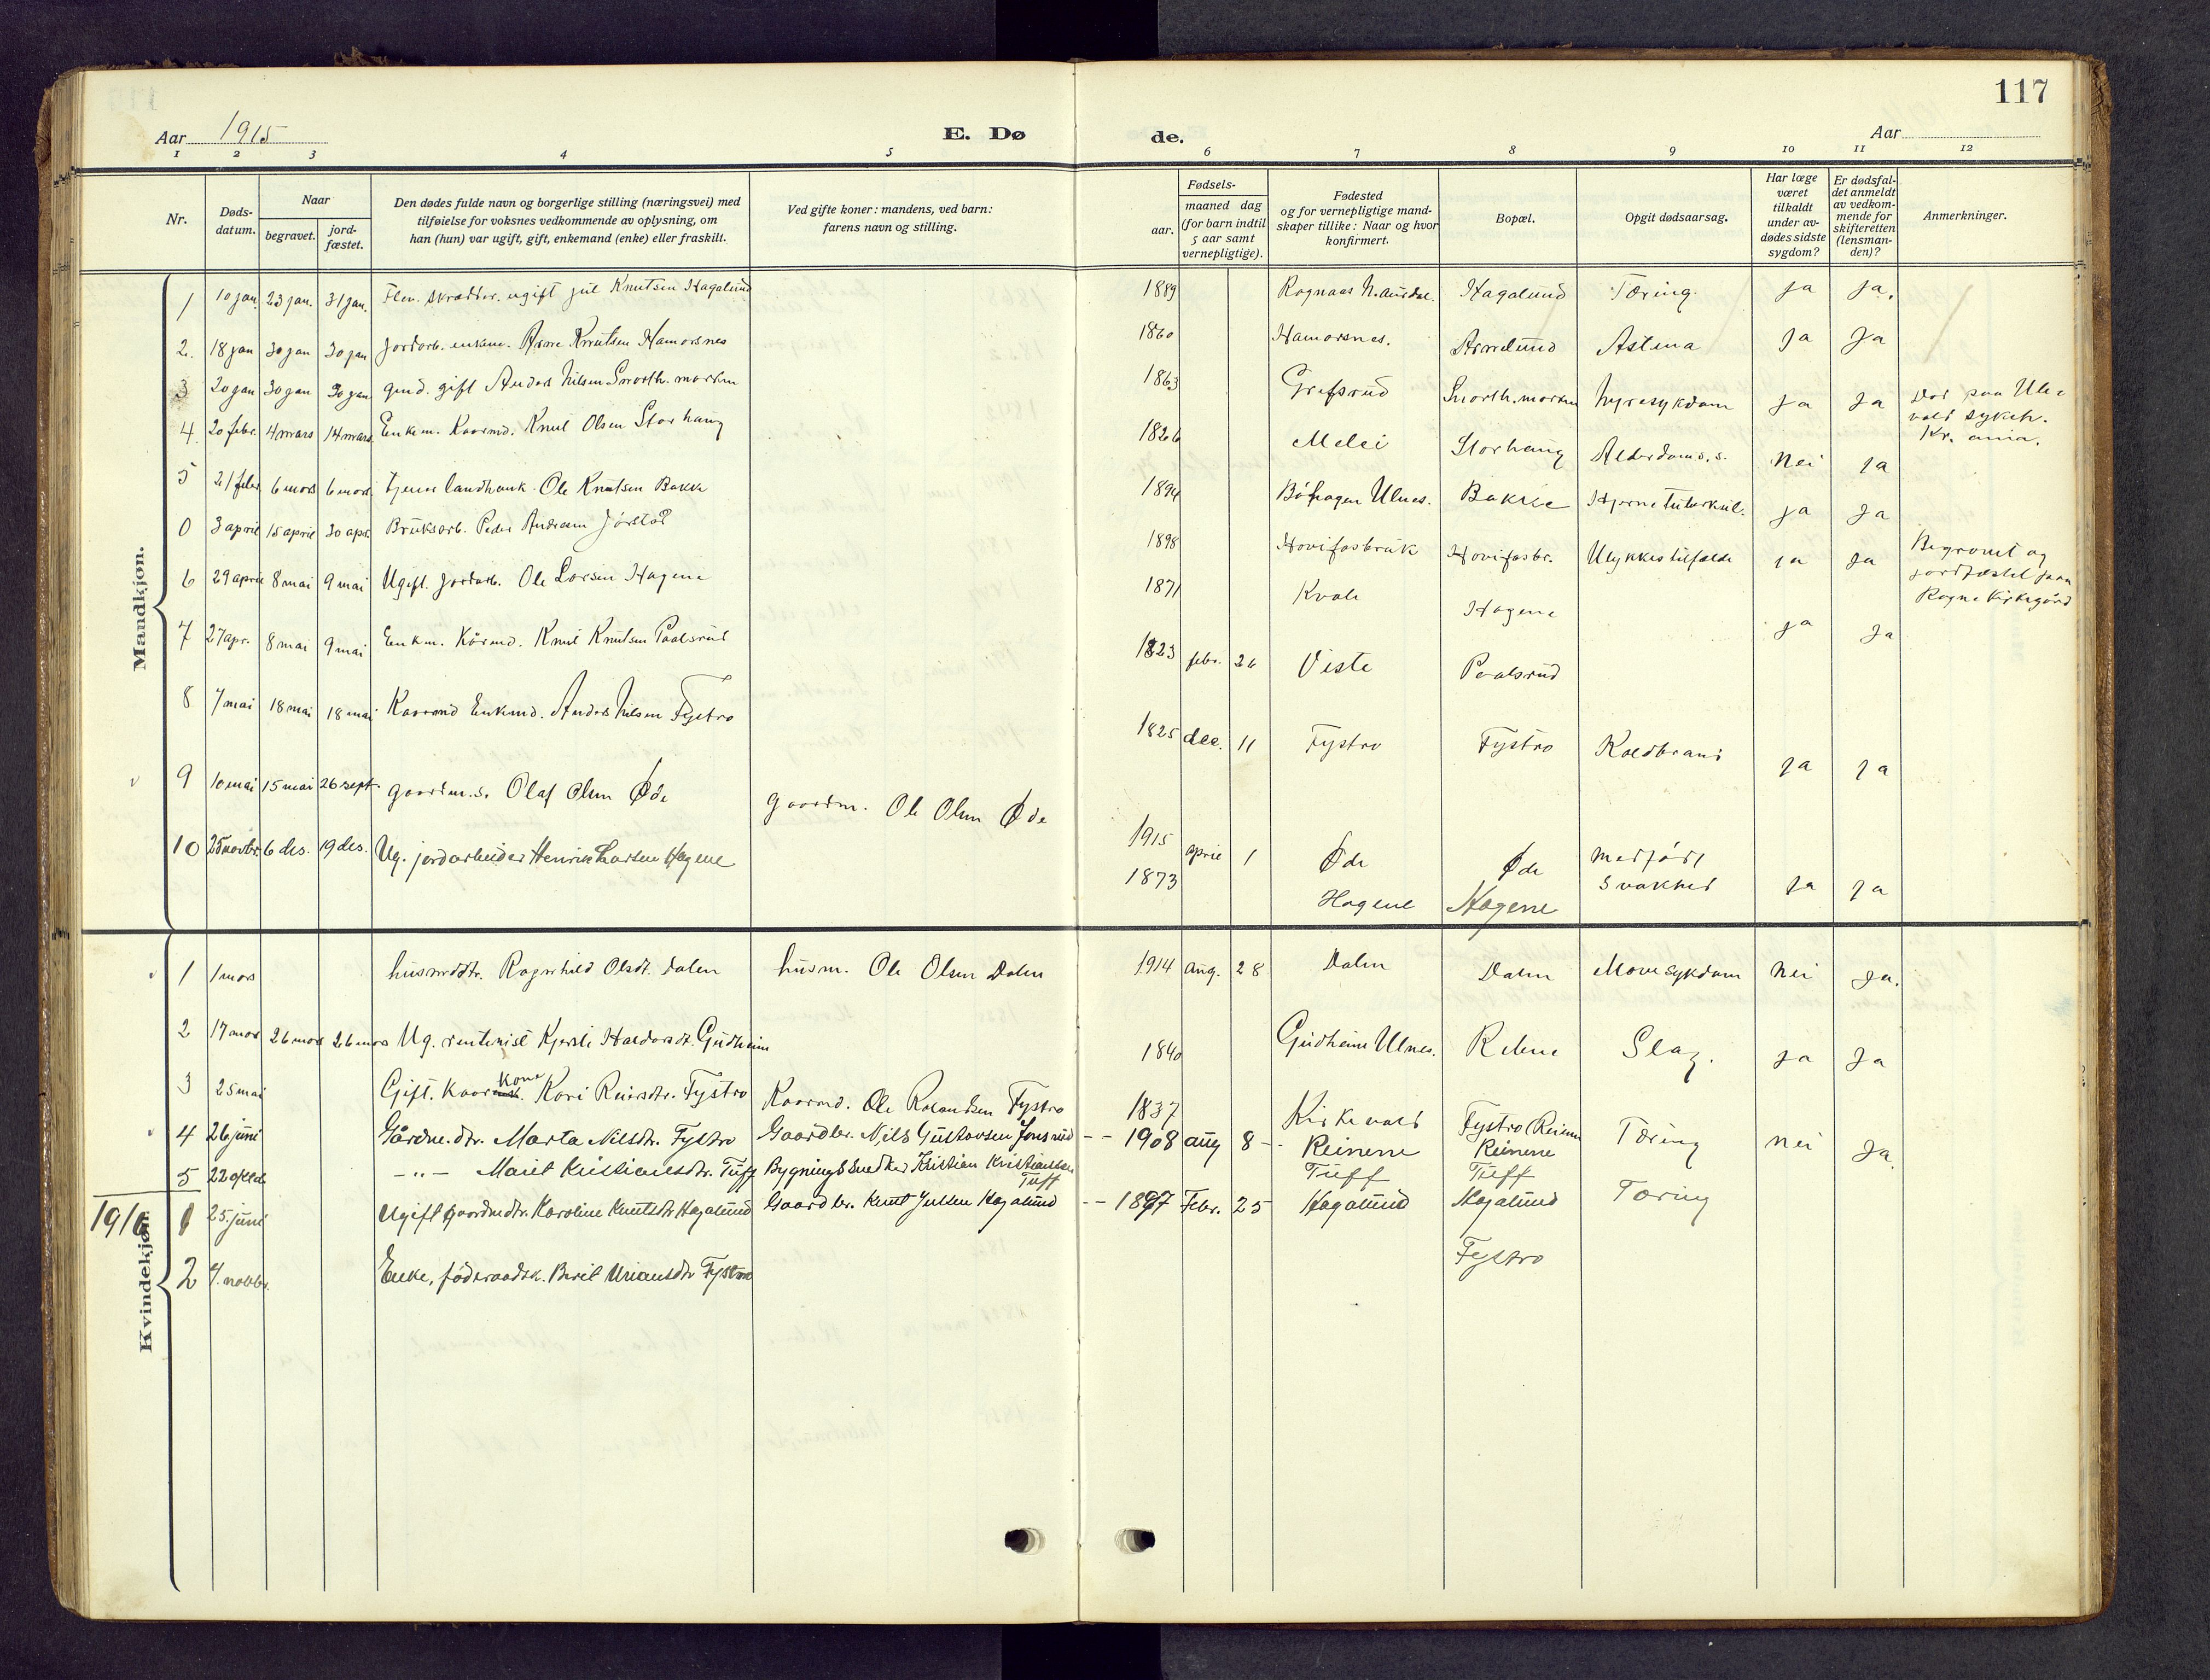 117
Aar 1915
E. Dø
de.
Aar
1 2 3 4 5 6 7 8 9 10 11 12
Nr.
Døds-
datum.
Naar
begravet.
jord-
fæstet.
Den dødes fulde navn og borgerlige stilling (næringsvei) med
tilføielse for voksnes vedkommende av oplysning, om
han (hun) var ugift, gift, enkemand (enke) eller fraskilt.
Ved gifte koner: mandens, ved barn:
farens navn og stilling.
Fødsels-
aar.
maaned dag
(for barn indtil
5 aar samt
vernepligtige).
Fødested
og for vernepligtige mand-
skaper tillike: Naar og hvor
konfirmert.
Bopæl.
Opgit dødsaarsag.
Har læge
været
tilkaldt
under av-
dødes sidste
sygdom?
Er dødsfal-
det anmeldt
av vedkom-
mende for
skifteretten
(lensman-
den)?
Anmerkninger.
Mandkjøn.
1 10 jan. 23 jan. 31 jan. skrædder. ugift Jul Knutsen Hagalund 1889 Rognaas N. Aurdal. Hagalund Tæring. ja ja.
2. 18 jan 30 jan 30 jan Jordarb. enkem. Arne Knutsen Hamorsnes 1860 Hamorsnes. Arnelund Astma ja ja
3 20 jan 30 jan 30 jan gmd. gift Anders Nilsen 1863 Grefsrud Nyresykdom ja ja Død paa Ule-
vold sykeh.
Kr.ania.
4. 20 febr. 4 mars 14 mars Enkem. Kaarmd. Knut Olsen Storhaug 1826 Melei Storhaug Alderdoms.s. nei ja
5 21 febr 6 mars 6 mars tjener landhank. Ole Knutsen Bakke 1894 Bøhagen Ulnes. Bakke Hjernetuberkul. ja ja
0 3 april 15 april 30 apr. Bruksarb. Peder Andersen Jørstad 1898 Hovifosbruk Hovifosbr. Ulykkestilfælde ja ja Begravet og
jordfæstet paa
Rogne Kirkegård
6 29 april 8 mai 9 mai Ugift. Jordarb. Ole Larsen Hagene 1871 Kvale Hagene ja ja
7 27 apr. 8 mai 9 mai Enkm. Kårmd. Knut Knutsen Paalsrud 1823 febr. 26 Viste Paalsrud
8 7 mai 18 mai 18 mai Kaarmd Enkmd. Anders Nilsen Fystro 1825 dec. 11 Fystro Fystro Koldbrand ja ja
9 10 mai 15 mai 26 sept. gaardm.s. Olaf Olsen Øde gaardm. Ole Olsen Øde 1915 april 1 Øde Øde Medfødt
svakhed ja ja
10 25 novbr. 6 des. 19 des. Ug. jordarbeider Henrik Larsen Hagene 1873 Hagene Hagene
Kvindekjøn.
1 1 mars husmddtr. Ragnhild Olsdt. Dalen husm. Ole Olsen Dalen 1914 aug. 28 Dalen Dalen Mavesykdom Nei ja.
2 17 mars 26 mars 26 mars Ug. rentenist Kjersti Haldorsdt. Gudheim 1840 Gudheim Ulnes. Slag. ja ja
3 25 mai Gift. Kaarkone Kari Reiersdtr. Fystro Kaarmd. Ole Fystro 1837 Kirkevold Fystro
4 26 juni Gårdm.dtr. Marta Nilsdtr. Fystro Gaardbr. Nils Gustavsen Jonsrud -- 1908 aug 8 -- Reinene Reinene Tæring nei ja.
5 22 oktob -"- Marit Kristiansdtr. Tuff Bygningssnedker Kristian Kristiansen
Tuff Tuff Tuff
1916 1 25. juni Ugift gaardmdtr. Karoline Knutsdtr Hagalund Gaardbr. Knut Julsen Hagalund -- 1897 Febr. 25 Hagalund Hagalund Tæring
2 4. novbr. Enke, föderaadsk. Berit Uriansdtr Fystro Fystro